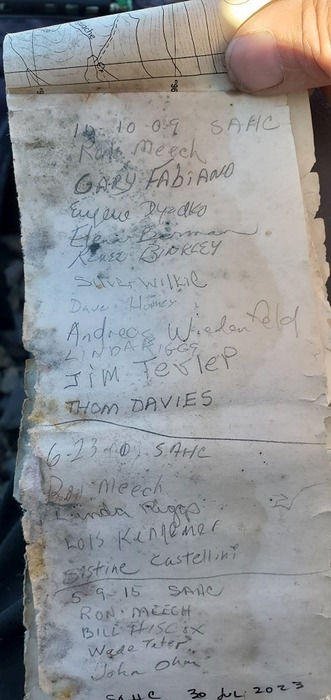 11-10-09 SAHC
Ron Meech
GARY FABIANO
Eugene Dyacko
Elena
Renee BINKLEY
Silver WILKIE
Dave
Andreas Wiedenfeld
LINDA RIGGS
JIM TERLEP
THOM DAVIES
6-23-10 SAHC
Ron Meech
Linda Riggs
LOIS
Sistine Castellini
5-9-15 SAHC
RON MEECH
BILL HISCOX
Wade
John Ohm
SAHC 30 Jul 2023